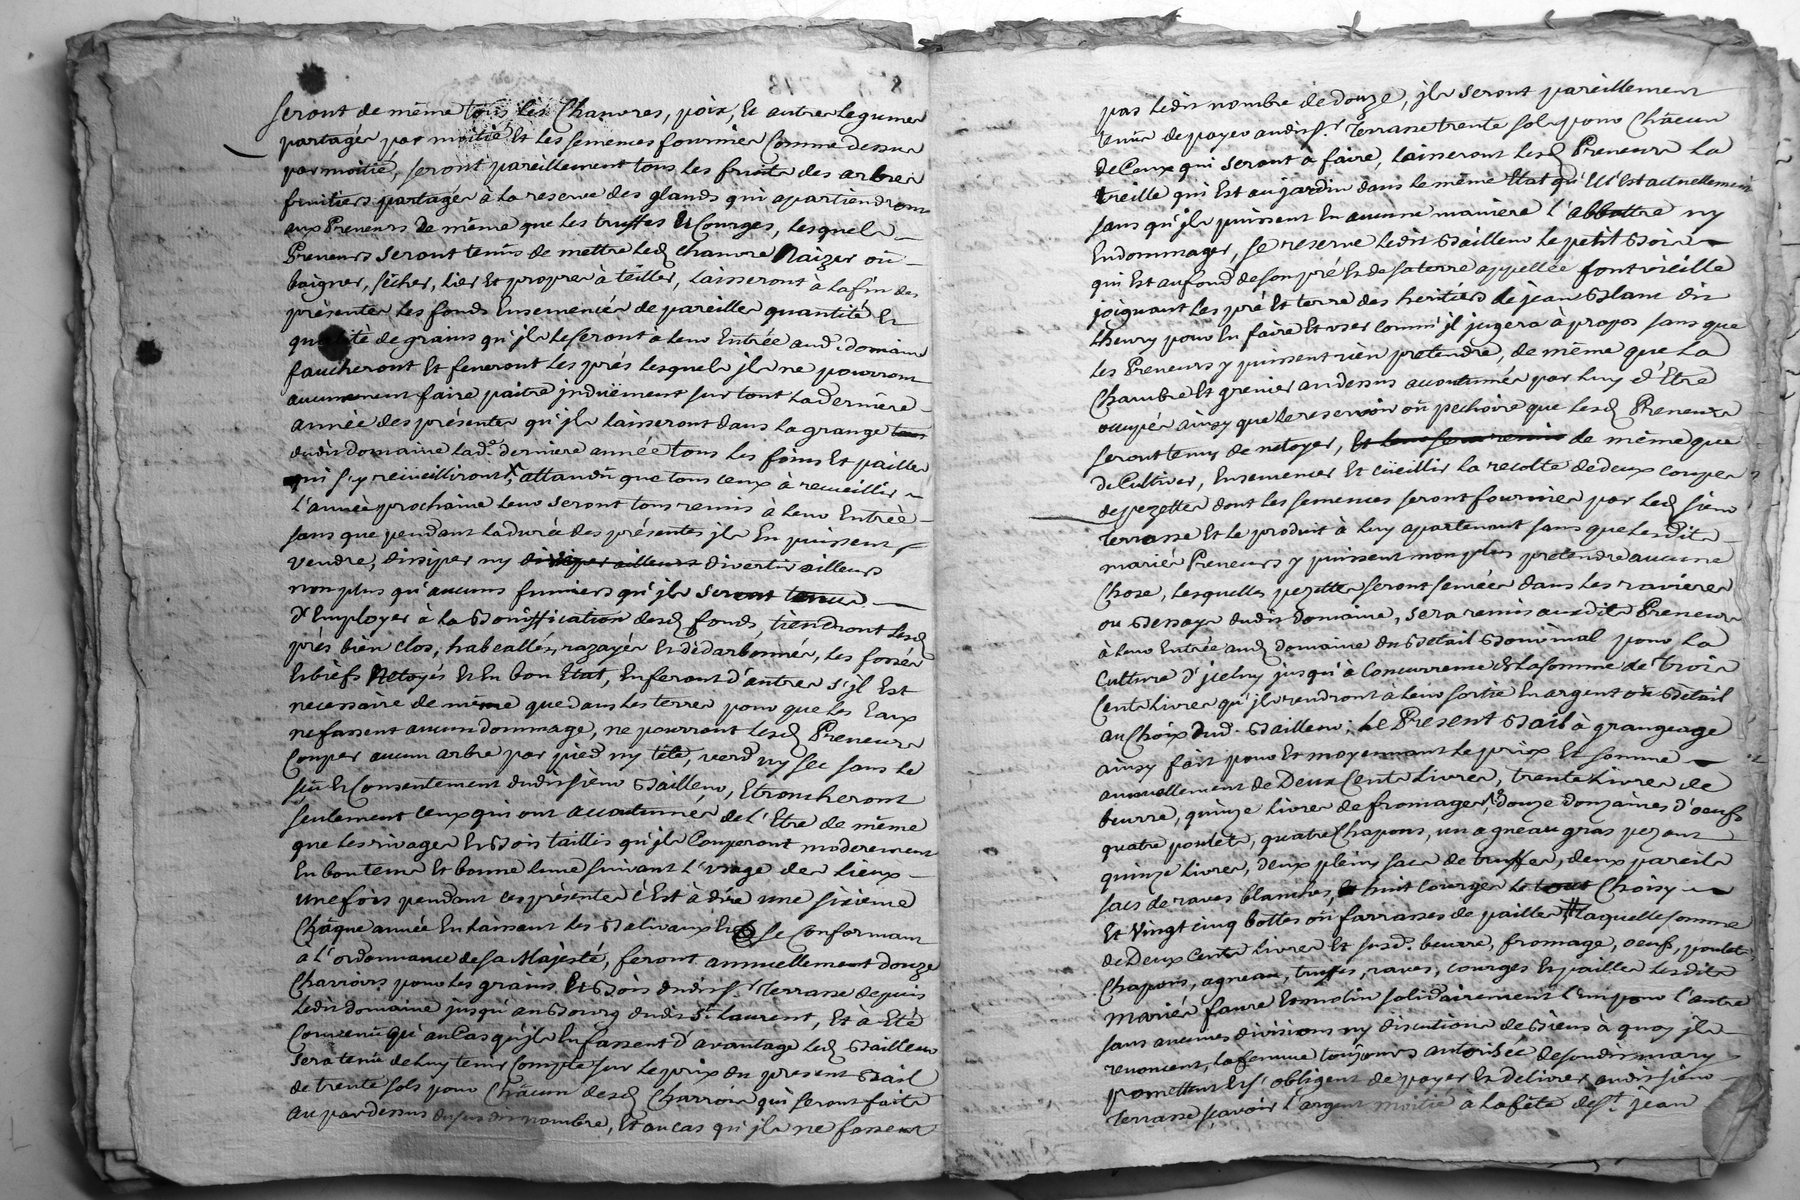 seront de même tous les Chanvres, poix, et autres legumes
partagés par moitié et les semences fournies comme dessus
par moitié, seront pareillement tous les fruits des arbres
fruitiers partagés à la reserve des glands qui apartiendront
aux Preneurs de même que les truffes et Courges, lesquels
Preneurs seront tenus de mettre lesd chanvre Naizer ou
baigner, sêcher, lier et propres à teiller, laisseront à la fin des
présentes les fonds Ensemencés de pareille quantité et
qualité de grains qu'jls le seront à leur Entrée aud. domaine
faucheront et feneront les prés lesquels jls ne pourront
aucunement faire paitre jnduëment sur tout la derniere
année des présentes qu'jls laisseront dans la grange tous
dudit domaine lad. derniere année tous les foins et pailles
qui s'y recueilliront, attandû que tous ceux à recueillir
l'année prochaine leur seront tous remis à leur Entrée
sans que pendant la durée des présentes jls En puissent
vendre, dissiper ny divertir ailleurs
non plus qu'aucuns fumiers qu'jls seront tenus
d'Employer à la Boniffication desd fonds, tiendront lesd
prés bien clos, habeallés, razayés et dédarbonnés, les fossés
et biefs Netoyés et En bon Etat, En feront d'autres s'jl Est
necessaire de même que dans les terres pour que les Eaux
ne fassent aucun dommage, ne pourront lesd Preneurs
Couper aucun arbre par pied ny tête, verd ny sec sans le
sçu et Consentement dudit sieur Bailleur, Etroncheront
seulement ceux qui ont accoutumés de l'Etre de même
que les rivages et Bois taillis qu'jls Couperont moderement
En bon tems et bonne lune suivant l'usage des lieux
une fois pendant ces présentes c'Est à dire une sixieme
Châque année En laissant les Balivaux et se Conformant
à l'ordonnance de sa Majesté, feront annuellement douze
Charrois pour les grains et Bois dudit S.r Terrasse depuis
ledit domaine jusqu'au Bourg dudit S.t Laurent, et à Eté
Convenû qu'au Cas qu'jls En fassent d'avantage led Bailleur
sera tenû de leur tenir Compte sur le prix du present Bail
de trente sols pour Châcun desd Charrois qui seront faits
au par dessus dud nombre, et au cas qu'jls ne fassent
pas ledit nombre de douze, jls seront pareillement
tenus de payer audit S.r Terrasse trente sols pour Châcun
de Ceux qui seront à faire, laisseront lesd Preneurs la
treille qui Est au jardin dans le même Etat qu'Ell'Est actuellement
sans qu'jls puissent En aucune maniere l'abbattre ny
Endommager, se reserve ledit Bailleur le petit Bois
qui Est au fond de son pré et de sa terre appellée font vieille
joignant les pré et terre des heritiers de jean Blanc dit
Lheury pour En faire et user comm'jl jugera à propos sans que
les Preneurs y puissent rien pretendre, de même que la
Chambre et grenier au dessus accoutumés par luy d'Etre
occupés ainsy que le reservoir ou pechoire que lesd Preneurs
seront tenus de netoyer, de même que
de Cultiver, Ensemencer et cüeillir la recolte de deux coupes
de pezettes dont les semences seront fournies par led sieur
Terrasse et le produit à luy apartenant sans que lesdits
mariés Preneurs y puissent non plus pretendre aucune
Chose, lesquelles pezettes seront semées dans les ravieres
ou Bessaye dudit domaine, sera remis auxdits Preneurs
à leur Entrée aud domaine du Betail Bouvinal pour la
Culture d'jceluy jusqu'à Concurrence de la somme de trois
Cents livres qu'jls rendront à leur sortie En argent ou Bétail
au Choix dud. Bailleur; Le Present Bail à grangeage
ainsy fait pour et moyennant le prix et somme
annuellement de Deux Cents livres, trente livres de
beurre, quinze livres de fromages, douze douzaines d'oeufs
quatre poulets, quatre Chapons, un agneau gras pezant
quinze livres, deux pleins sacs de truffes, deux pareils
sacs de raves blanches, huit courges le tout Choisy
Et vingt cinq bottes ou farrasses de pailles # laquelle somme
de Deux Cents livres et susd. beurre, fromage, oeufs, poulets
Chapons, agneau, truffes, raves, courges et pailles lesdits
mariés faure et molin solidairement l'un pour l'autre
sans aucunes divisions ny discutions de biens à quoy jls
renoncent, la femme toujours autorisée de sondit mary
promettent et s'obligent de payer et delivrer audit sieur
Terrasse sçavoir l'argent moitié à la fête de S.t jean